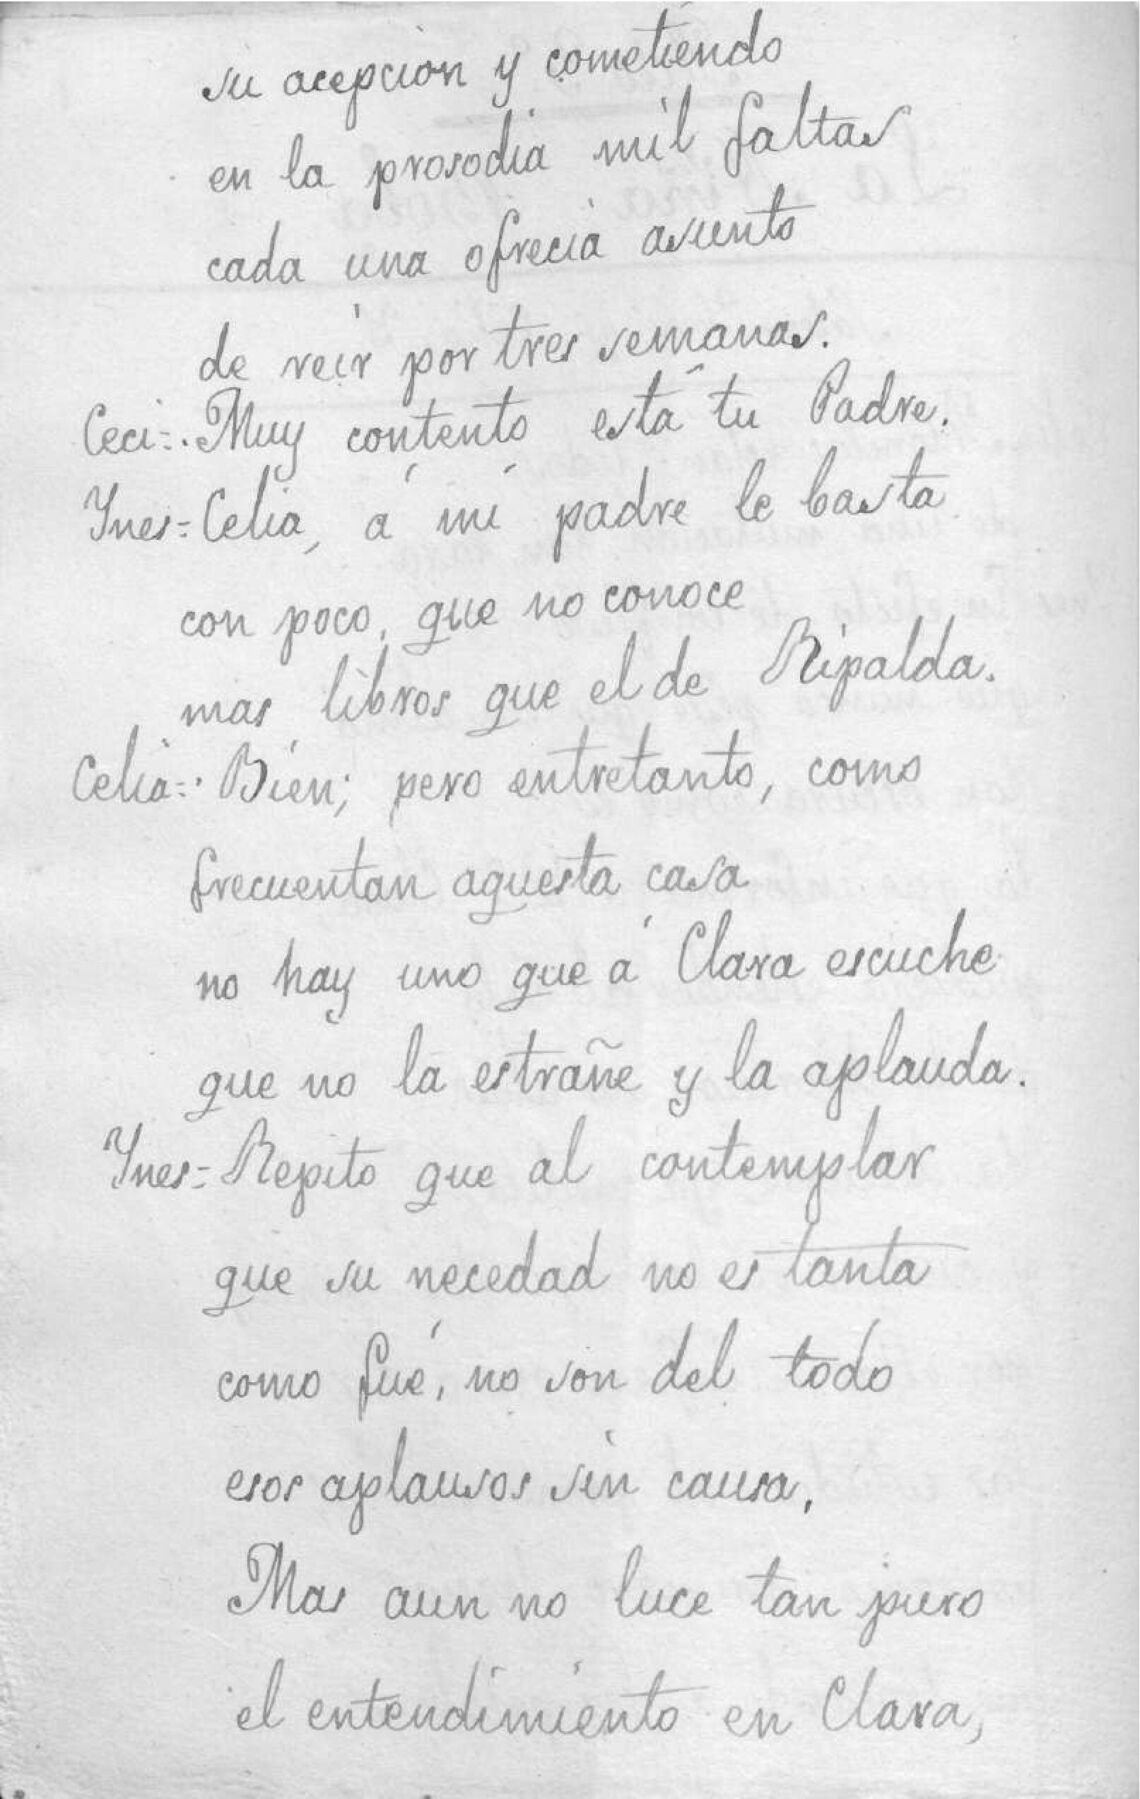 su acepcion y cometiendo
en la prosodia mil faltas
cada una ofrecia asunto
de reir por tres semanas.
Ceci=. Muy contento está tu Padre.
Ynes= Celia, á mi padre le basta
con poco, que no conoce
mas libros que el de Ripalda.
Celia=. Bien; pero entretanto, como
frecuentan aquesta casa
no hay uno que á Clara escuche
que no la estrañe y la aplauda.
Ynes= Repito que al contemplar
que su necedad no es tanta
como fué, no son del todo
esos aplausos sin causa,
Mas aun no luce tan puro
el entendimiento en Clara,